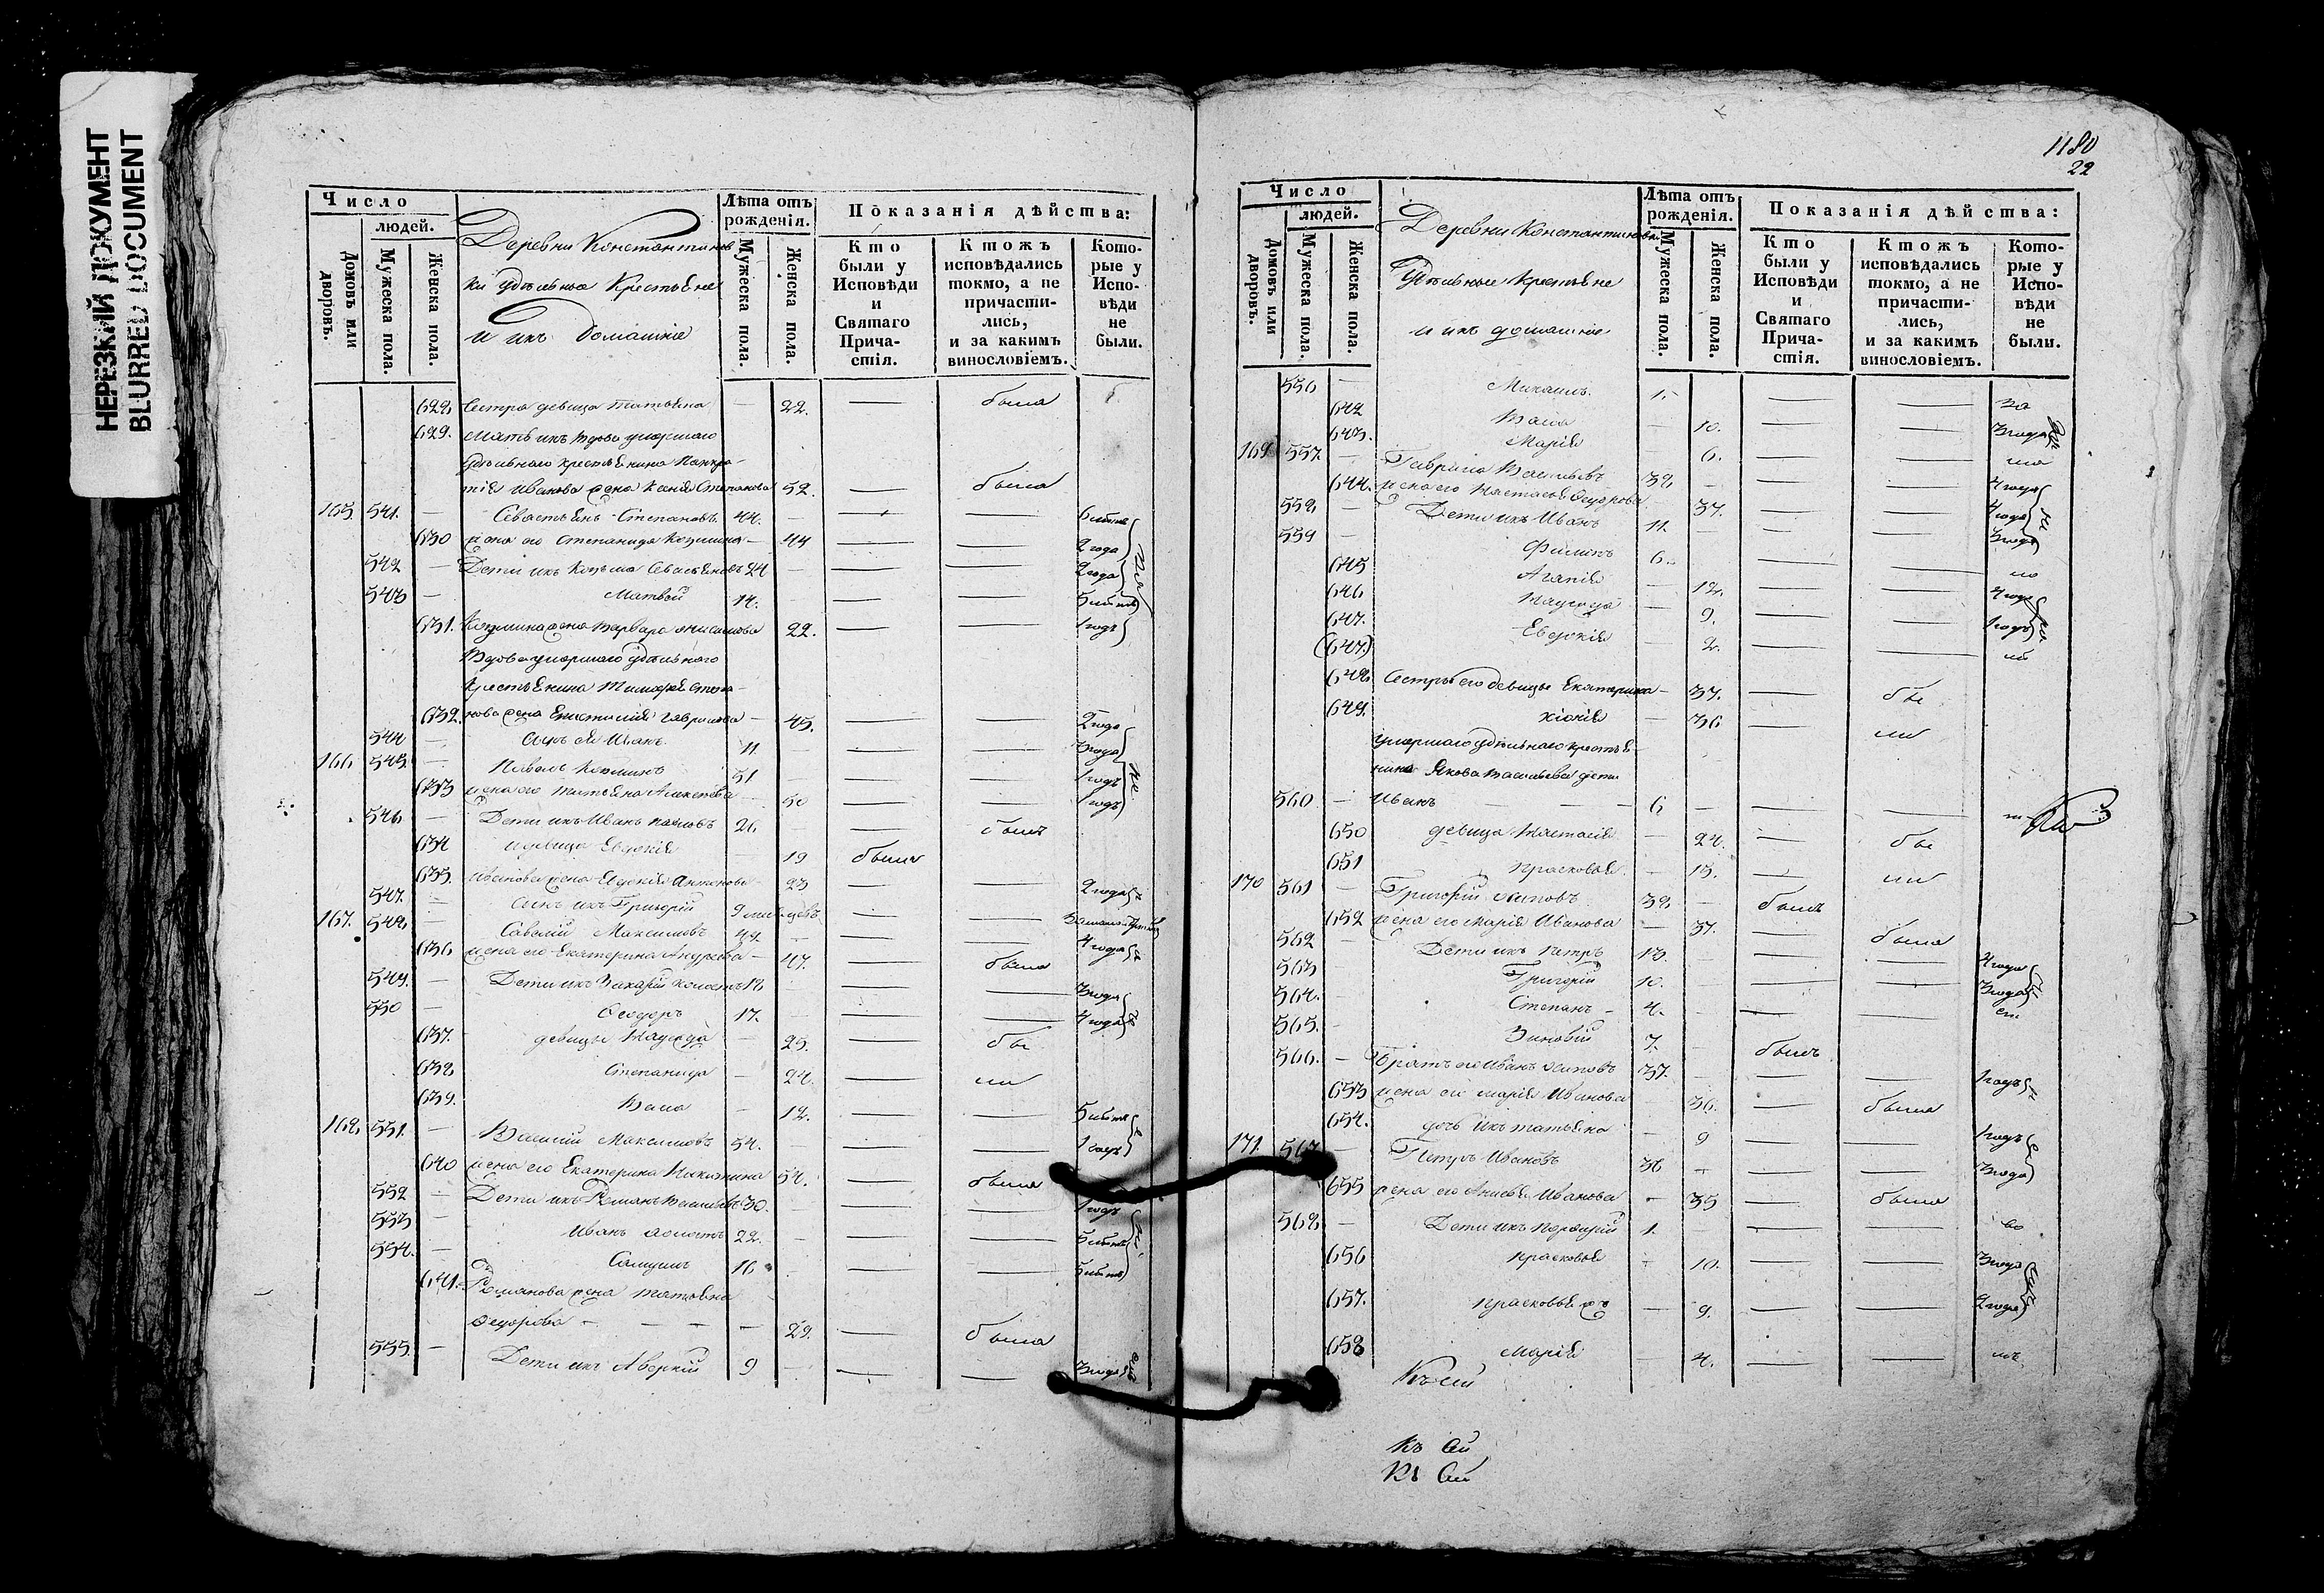 НЕРЕЗКИЙ ДОКУМЕНТ
BLURRED DOCUMENT
Число
людей.
Домовъ или дворовъ.
Мужеска пола.
Женска пола.
Деревни Константинов
ки Удѣльные Крестьяне
и ихъ домашніе
Лѣта отъ рожденія.
Мужеска пола.
Женска пола.
Показанія дѣйства:
Кто были у Исповѣди и Святаго Причастія.
Ктожъ исповѣдались токмо, а не причастились, и за какимъ винословіемъ.
Которые у Исповѣди не были.
628 Сестра девица Татьяна — 22. — была
629. Мать ихъ вдова умершаго
Удѣльнаго крестьянина Панкра-
тія Иванова жена Ксенія Степанова 52. — была
165 541. — Севастьянъ Степановъ 44. — — —
630 жена его Степанида Козмина — 44 — — 2 года
542 — Дети ихъ Козьма Севастьяновъ 24 — — — 2 года
543 — Матвей 14. — — —
631. Козмина жена Варвара 22. — — 1 годъ
Вдова умершаго удѣльнаго
Крестьянина Тимофея Степа-
632. нова жена Гаврилова — 45. — — 2 года
544 — Сынъ ея Иванъ 11 — — 3 года
166 545 — Павелъ Козминъ 51 — — — 1 годъ
633 жена его Татьяна Алексеева — 50 — — 1 годъ
546 — Дети ихъ Иванъ Павловъ 26 — — былъ
634 и девица Евдокія — 19 была
635. Иванова жена Антонова — 23 — — 2 года
547. — Сынъ ихъ Григорій 9
167. 548 — Савелій Максимовъ 49 — — — 4 года
636 жена его Екатерина Андреева — 47. — была
549. — Дети ихъ Захарій холостъ 18 — — — 3 года
550 — Феодоръ 17. — — — 4 года
637. девицы Надежда — 25. — бы
638 Степанида — 24. — ли
639. Васса — 12. — —
168 551. — Василій Максимовъ 54. — — 1 годъ
640 жена его Екатерина Никитина 54. — была
552 — Дети ихъ Романъ Васильевъ 30. — — — 1 годъ
553 — Иванъ холостъ 22. — — —
554. — Самуилъ 16 — —
641. Романова жена Татьяна
Федорова — — — — 29. — была
555. — Дети ихъ Аверкій 9 — — — 3 года
1180
22
Число
людей.
Домовъ или дворовъ.
Мужеска пола.
Женска пола.
Деревни Константиновки
Удѣльные Крестьяне
и ихъ домашніе
Лѣта отъ рожденія.
Мужеска пола.
Женска пола.
Показанія дѣйства:
Кто были у Исповѣди и Святаго Причастія.
Ктожъ исповѣдались токмо, а не причастились, и за какимъ винословіемъ.
Которые у Исповѣди не были.
556 — Михаилъ 1. — —
642 Васса — 10. — — 3 года
643. Марія — 6. — —
169 557. — Гаврила Васильевъ 38 — 4 года
644. жена его Настасья Федорова 37. — — 4 года
558 — Дети ихъ Иванъ 11. — — 3 года
559 — Филипъ 6. — —
645 Агапія — 12. — — 4 года
646 Надежда — 9. — — 1 годъ
647. Евдокія — 2. — —
(647.)
648 Сестры его девицы Екатерина — 37. — бы
649. Хіонія — 36 — ли
умершаго удѣльнаго крестья-
нина Якова Васильева дети
560 — Иванъ — — — 6 — — —
650 девица Настасія — 24. — бы
651 Прасковья — 15. — ли
170 561 — Григорій Осиповъ 38 — былъ
652 жена его Марія Иванова — 37. — была
562 — Дети ихъ Петръ 13. — — 4 года
563 Григорій 10. — — — 3 года
564. Степанъ — 4. — — —
565. — Зиновій 7. — былъ
566. — Братъ его Иванъ Осиповъ 37. — — — 1 годъ
653 жена его Марія Иванова 36. — была
654. дочь ихъ Татьяна — 9 — — 1 годъ
171. 567 — Петръ Ивановъ 36 — — — 3 года
655 жена его Анисья Иванова — 35 — была
568 — Дети ихъ Порфирій 1. — — —
656 Прасковья — 10. — — 3 года
657. Прасковья — 9. — — 2 года
658 Марія — 4. — —